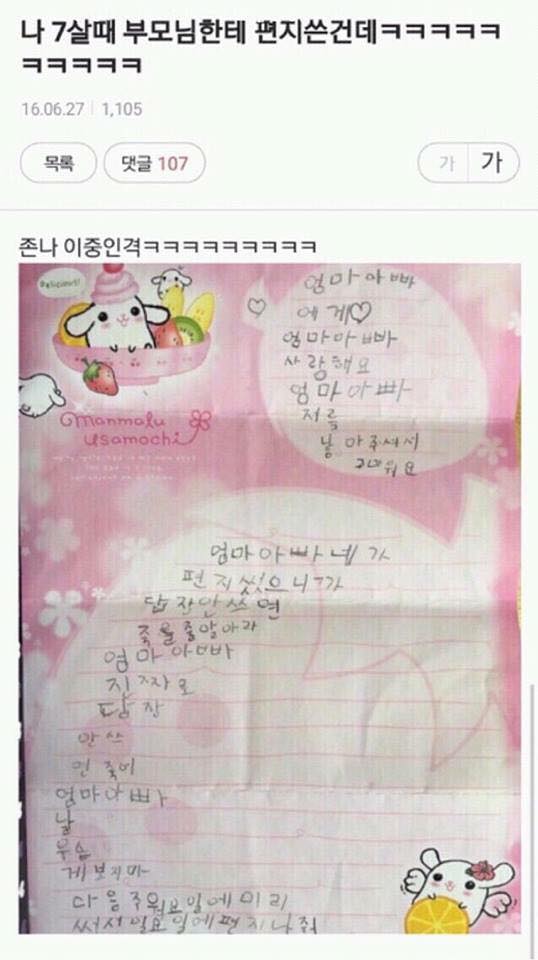 나 7살때 부모님한테 편지쓴건데ㅋㅋㅋㅋㅋ
ㅋㅋㅋㅋㅋ
16.06.27 | 1,105
목록
댓글 107
가 가
존나 이중인격ㅋㅋㅋㅋㅋㅋㅋㅋㅋ
Delicious!
엄마아빠
에게♡
엄마아빠
사랑해요
엄마아빠
저를
낳아주셔서
고마워요
Manmalu
Usamochi
엄마아빠 네가
편지썼으니가
답장안쓰면
죽을줄알아라
엄마아빠
진짜로
답장
안쓰
면 죽어
엄마아빠
날
우습
게보지마
다음주월요일에미리
써서일요일에편지나줘